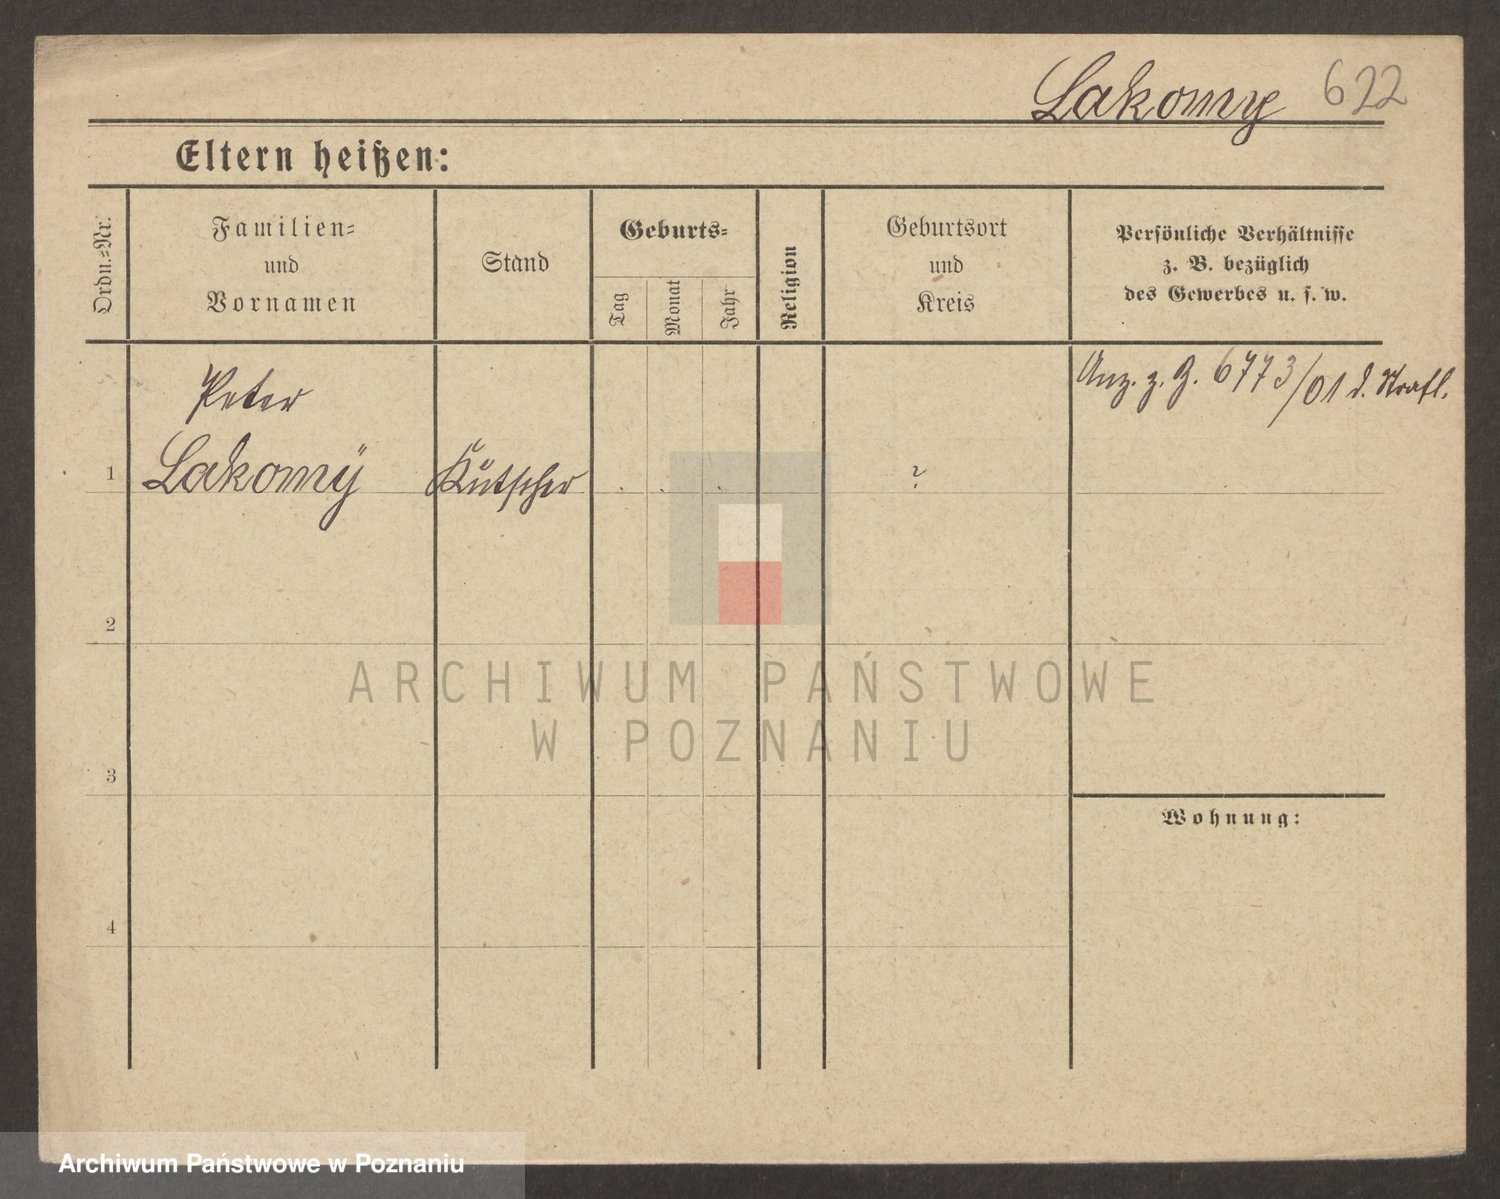 Lakomy 622
Eltern heißen:
Ordn.=Nr.
Familien=
und
Vornamen
Stand
Geburts=
Tag
Monat
Jahr
Religion
Geburtsort
und
Kreis
Persönliche Verhältnisse
z. B. bezüglich
des Gewerbes u. s. w.
Peter
Anz. z. G. 6773/01 d. Strafl.
1 Lakomÿ Kutscher . . . ?
2
3
Wohnung:
4
ARCHIWUM PAŃSTWOWE
W POZNANIU
Archiwum Państwowe w Poznaniu